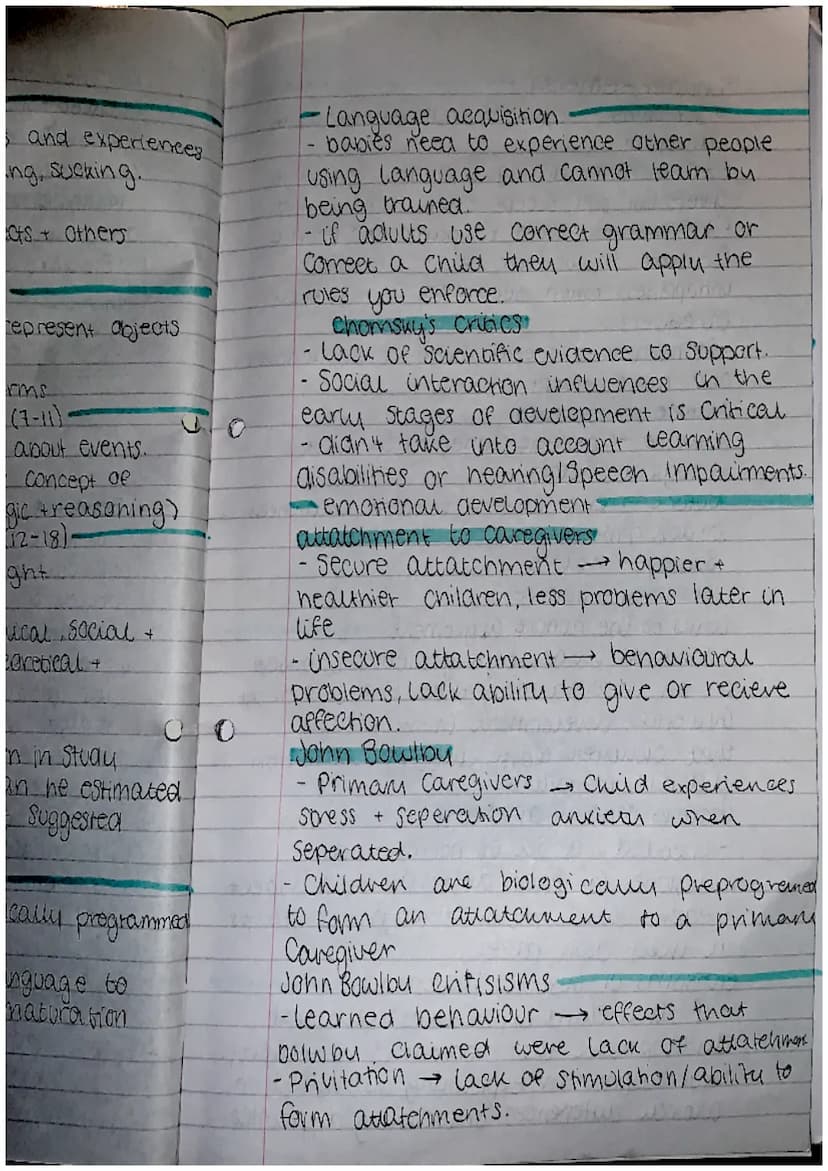 and experiences
ng, sucking.
cts + others
represent objects
rms
(7-11)
about events.
concept of
gic + reasoning)
(12-18)
ght
ical, social +
oretical +
n in study
an he estimated
suggested
cally programmed
nguage to
maturation
- Language acquisition
- babies need to experience other people
using language and cannot learn by
being trained.
- if adults use correct grammar or
correct a child they will apply the
rules you enforce.
Chomsky's critics
- Lack of scientific evidence to support.
- Social interaction influences in the
early stages of development is critical
- didn't take into account learning
disabilities or hearing/speech impairments.
- emotional development
attatchment to caregivers
- Secure attatchment → happier +
healthier children, less problems later in
life
- insecure attatchment → behavioural
problems, lack ability to give or recieve
affection.
John Bowlby
- Primary caregivers → child experiences
stress + seperation anxiety when
seperated.
- Children are biologically preprogramed
to form an attatchment to a primary
caregiver
John Bowlby critisisms
- learned behaviour → effects that
bolwby claimed were lack of attatchment
- Privitation → lack of stimulation/ability to
form attatchments.